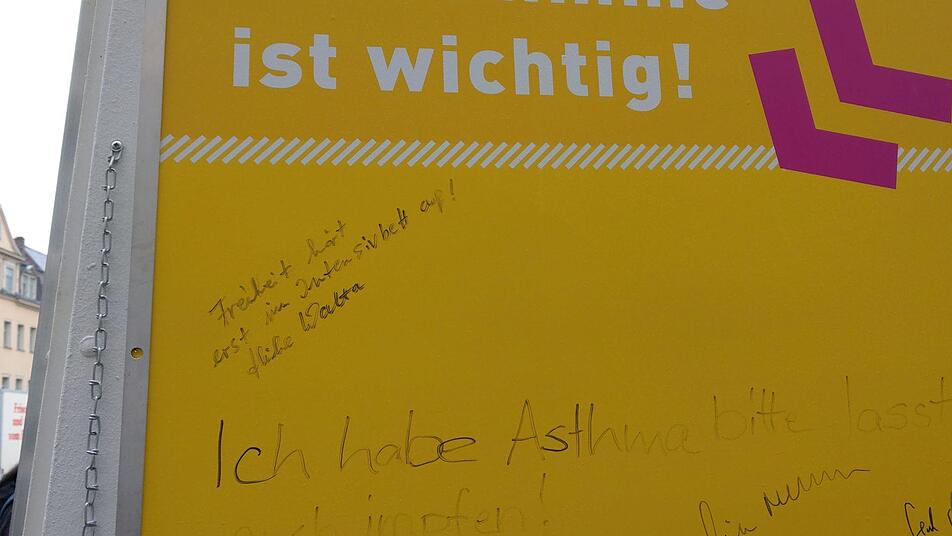 ist wichtig!
Freiheit hört
erst im Intensivbett auf!
Ich habe Asthma bitte lasst
euch impfen!